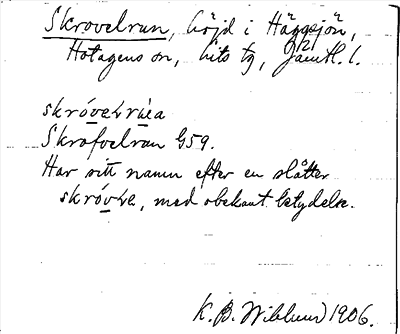 Skrovelrun, höjd i Häggsjön,
Hotagens sn, Lits tg, Jämtl. l.
121
skróvełrúa
Skrofvelrun G59.
Har sitt namn efter en slåtter
skróvłe, med obekant betydelse.
K. B. Wiklund 1906.